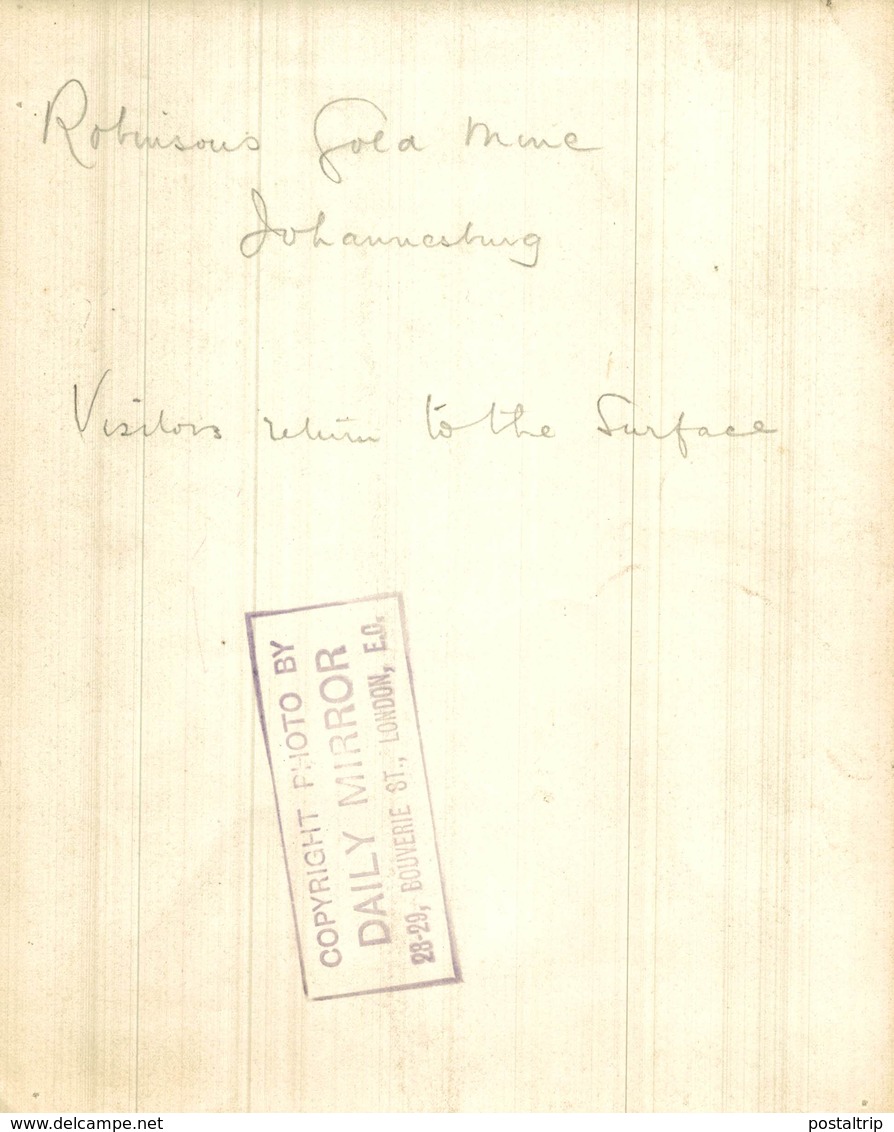 Robinsons Gold Mine
Johannesburg
Visitors return to the Surface
COPYRIGHT PHOTO BY
DAILY MIRROR
28-29, BOUVERIE ST., LONDON, E.C.
www.delcampe.net
postaltrip